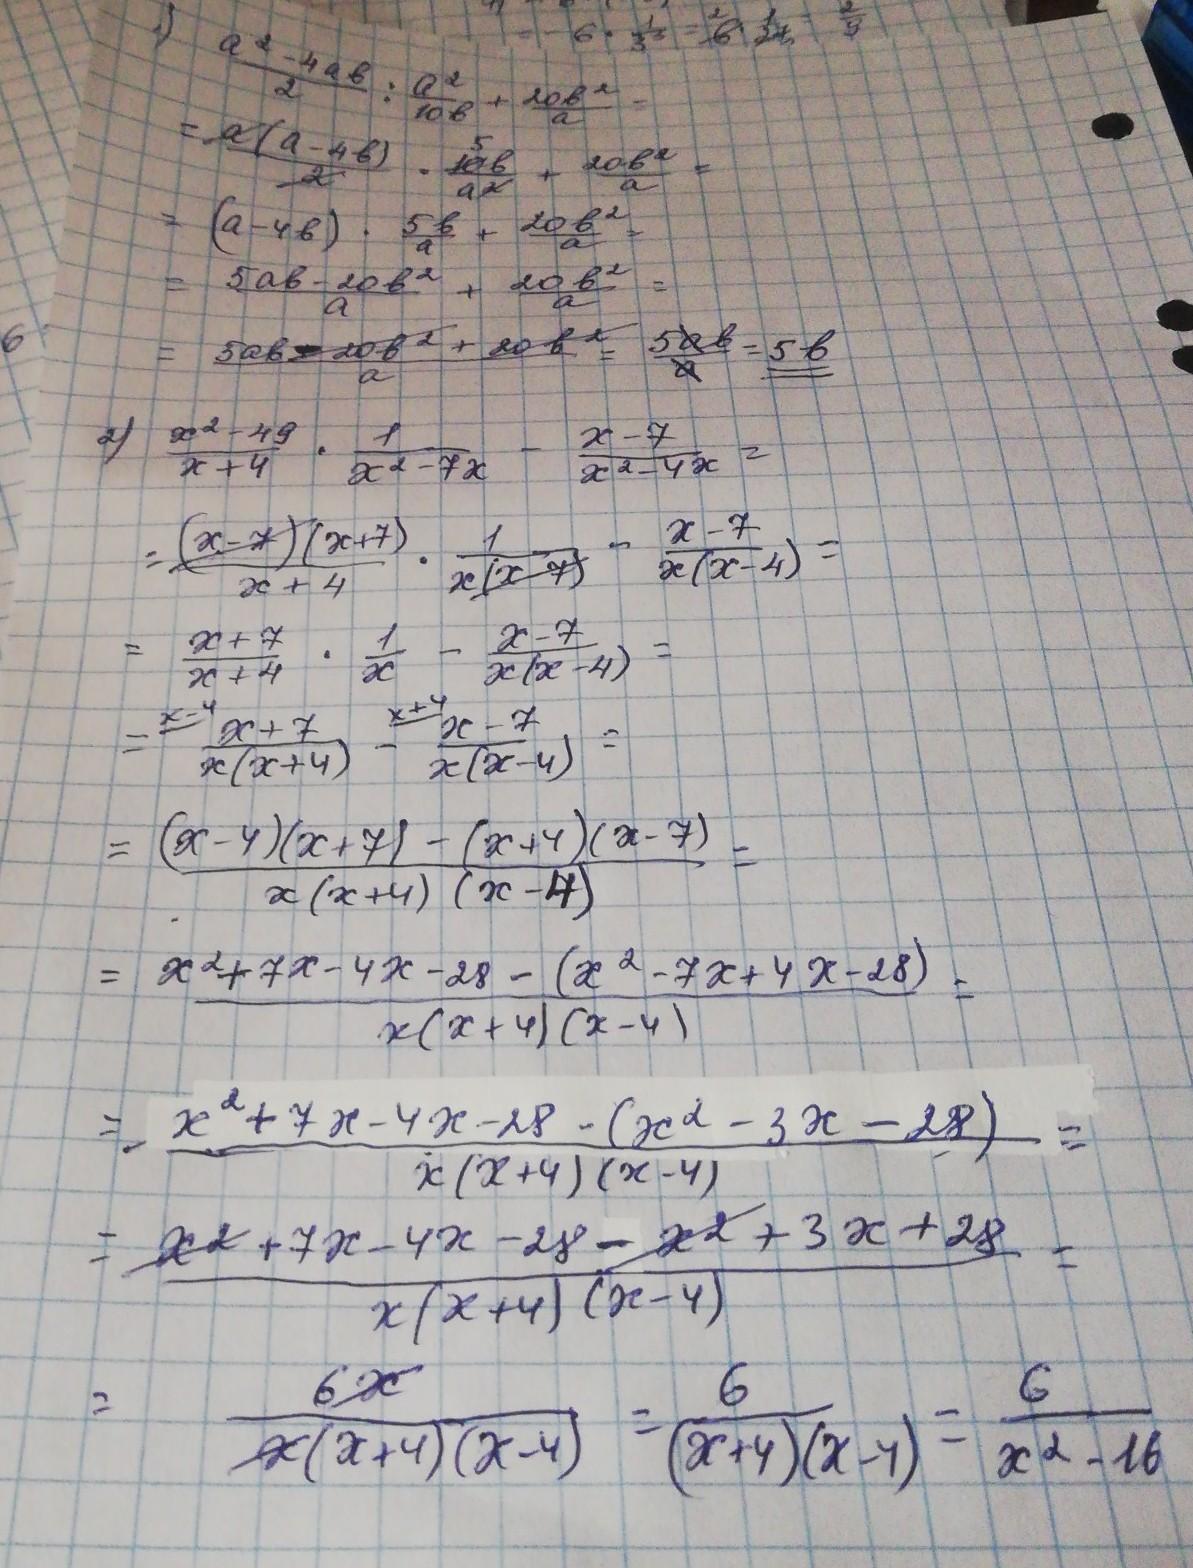 1) (a² - 4ab)/2 : a²/10b + 20b²/a =
= a(a - 4b)/2 · 10b/a² + 20b²/a =
= (a - 4b) · 5b/a + 20b²/a =
= (5ab - 20b²)/a + 20b²/a =
= (5ab - 20b² + 20b²)/a = 5ab/a = 5b
2) (x² - 49)/(x + 4) · 1/(x² - 7x) - (x - 7)/(x² - 4x) =
= (x - 7)(x + 7)/(x + 4) · 1/(x(x - 7)) - (x - 7)/(x(x - 4)) =
= (x + 7)/(x + 4) · 1/x - (x - 7)/(x(x - 4)) =
= x-4 (x + 7)/(x(x + 4)) - x+4 (x - 7)/(x(x - 4)) =
= ((x - 4)(x + 7) - (x + 4)(x - 7))/(x(x + 4)(x - 4)) =
= (x² + 7x - 4x - 28 - (x² - 7x + 4x - 28))/(x(x + 4)(x - 4)) =
= (x² + 7x - 4x - 28 - (x² - 3x - 28))/(x(x + 4)(x - 4)) =
= (x² + 7x - 4x - 28 - x² + 3x + 28)/(x(x + 4)(x - 4)) =
= 6x/(x(x + 4)(x - 4)) = 6/((x + 4)(x - 4)) = 6/(x² - 16)